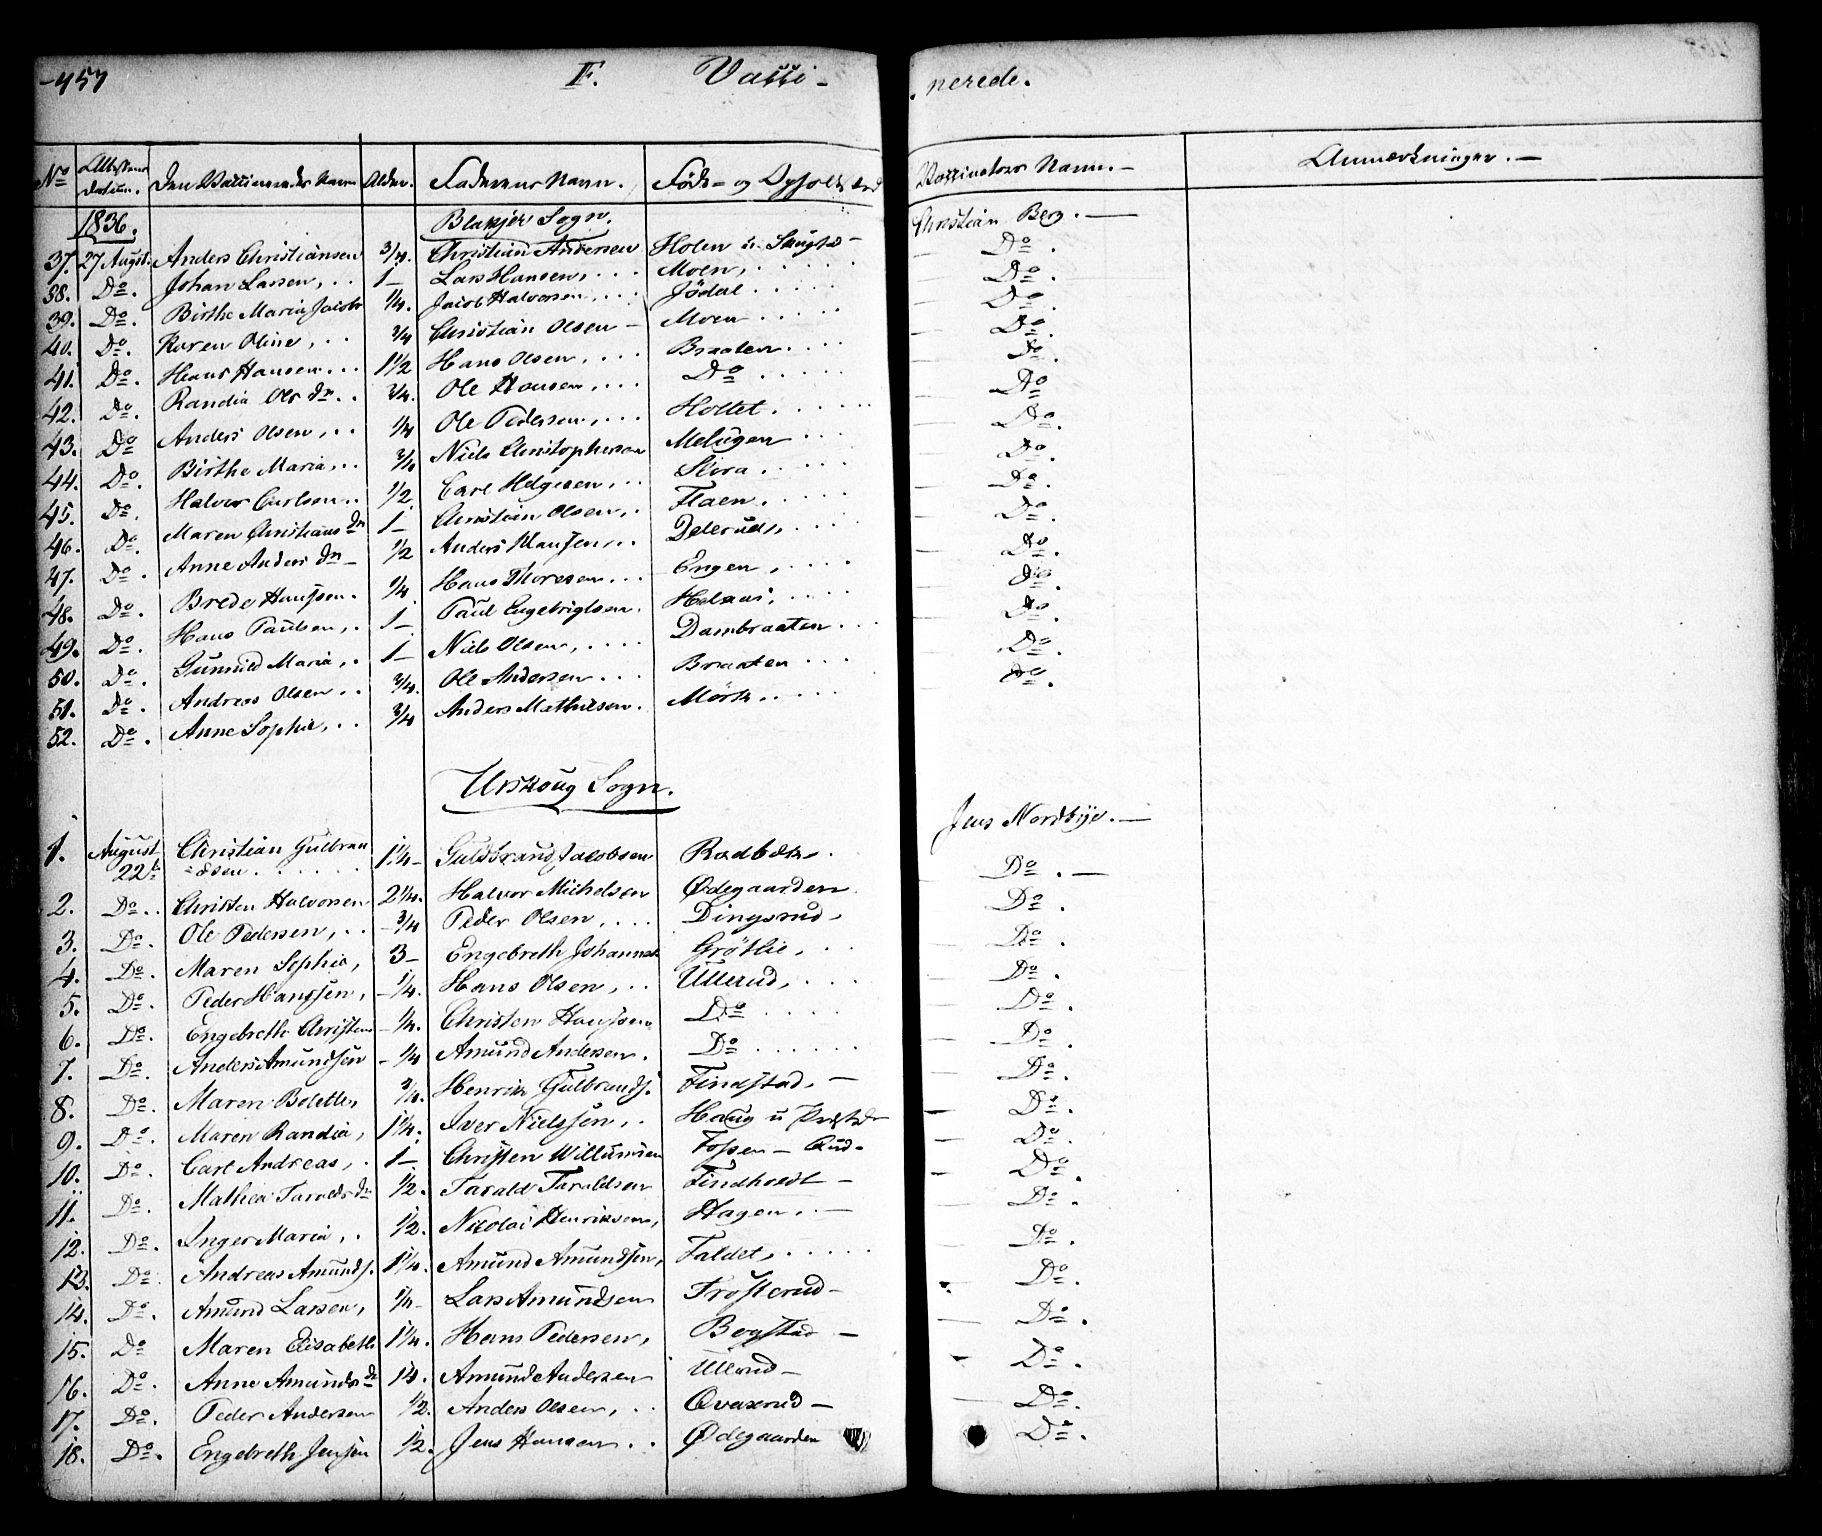 457 F. Vacci- nerede.
No Attestens Datum. Den Vaccineredes Navn Alder. Faderens Navn. Føde- og Opholds Sted Vaccinateurs Navn. Anmærkninger.
1836. Blakjer Sogn.
37. 27 August. Anders Christiansen 3/4. Christian Andersen Holen Christian Berg.
38. Do. Johan Larsen, 1 Lars Hansen, Moen, Do.
39. Do. Birthe Maria Jacobs 1/4. Jacob Halvorsen, Jödal Do.
40. Do. Karen Oline, 3/4 Christian Olsen Moen Do.
41. Do. Hans Hansen 1 1/2 Hans Olsen, Braaten Do.
42. Do. Randia Ols Dr. 3/4. Ole Hansen, Do Do
43. Do Anders Olsen, 1/4 Ole Pedersen, Holtet. Do
44. Do. Birthe Maria, Niels Christophersen Melügen Do.
45. Do. Halvor Carlsen 1/2 Carl Helgesen, Skora Do.
46. Do. Maren Christians Dr 1 Christian Olsen, Flaen. Do.
47. Do. Anne Anders Dr 1/2 Anders Hansen, Deleruds, Do.
48. Do. Brede Hanssen. 1/4. Hans Thoresen Engen, Do.
49. Do. Hans Paulsen, 1 Paul Engebrigtsen. Do.
50. Do. Gunnild Maria, 1 Niels Olsen, Dambraaten Do.
51. Do. Andreas Olsen 3/4. Ole Andersen Braaten Do.
52. Do. Anne Sophie, 3/4 Anders Mathiesen. Mörk Do.
Urskoug Sogn.
1. August 22de Christian Gulbran=dsen 1 1/4 Guldbrand Jacobsen Rødbek Jens Nordbye.
2. Do. Christen Halvorsen 2 1/4. Halvor Michelsen Ødegaarden Do.
3. Do. Ole Pedersen, 3/4 Peder Olsen, Dingsrud Do.
4. Do. Maren Sophia, 3 Engebreth Johannes Grötlie, Do.
5. Do. Peder Hanssen, 1/4. Hans Olsen, Ullerud, Do.
6. Do. Engebreth Christens 1/4. Christen Hanssen Do Do.
7. Do. Anders Amundsen 1/4 Amund Andersen. Do Do.
8. Do. Maren Bolette, Henrik Gulbrands. Findstad. Do.
9. Do. Maren Randia, 1 1/4. Iver Nielssen, Haug u Præsteg Do.
10. Do. Carl Andreas, 1 Christen Willumsen Fossen - Rud. Do.
11. Do. Mathea Taralds Dr 1/2. Tarald Taraldsen Findholdt Do.
12. Do. Inger Maria, 1/2. Nicolai Henriksen, Hagen. Do.
13. Do. Andreas Amunds. 1 1/4. Amund Amundsen, Faldet, Do.
14. Do. Amund Larsen, 1/4 Lars Amundsen Frosterud Do.
15. Do Maren Elisabeth 1 1/4. Hans Pedersen, Bogstad Do.
16. Do. Anne Amunds Dr 1/4. Amund Andersen Ullerud Do.
17. Do. Peder Andersen 1/2. Anders Olsen, Qværrud Do.
18. Do. Engebreth Jensen 1/2. Jens Hansen Ødegaarden Do.